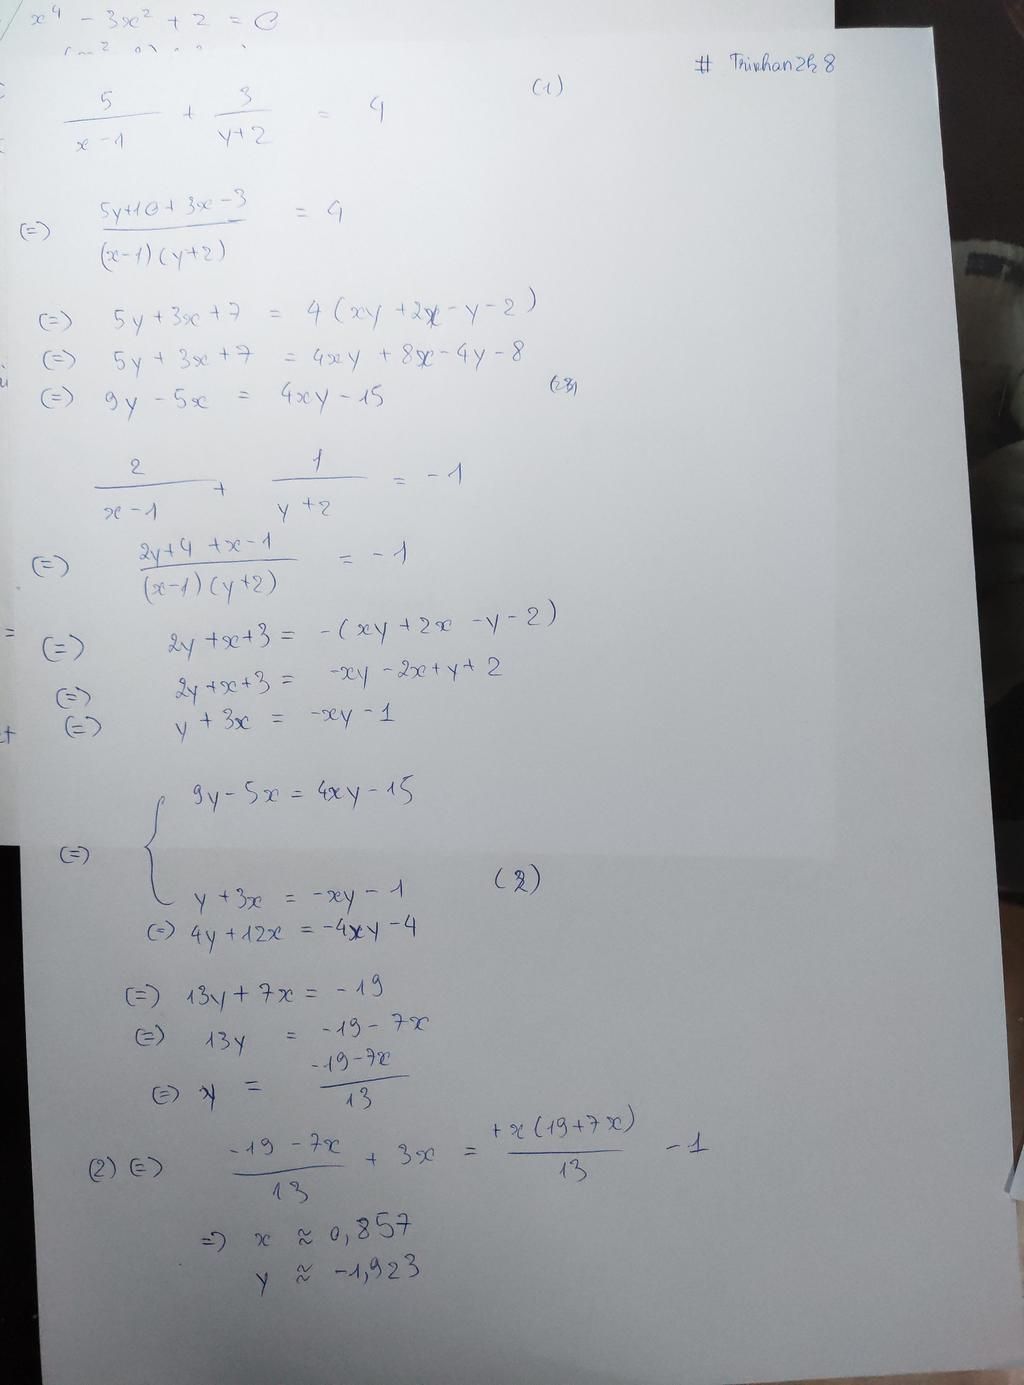 x⁴ - 3x² + 2 = 0
# Trinhan2k8
5/(x-1) + 3/(y+2) = 4 (1)
(=) (5y+10+3x-3)/((x-1)(y+2)) = 4
(=) 5y+3x+7 = 4(xy+2x-y-2)
(=) 5y+3x+7 = 4xy+8x-4y-8
(=) 9y-5x = 4xy-15
2/(x-1) + 1/(y+2) = -1
(=) (2y+4+x-1)/((x-1)(y+2)) = -1
(=) 2y+x+3 = -(xy+2x-y-2)
(=) 2y+x+3 = -xy-2x+y+2
(=) y+3x = -xy-1
(=) { 9y-5x = 4xy-15
y+3x = -xy-1 (2)
(=) 4y+12x = -4xy-4
(=) 13y+7x = -19
(=) 13y = -19-7x
(=) y = (-19-7x)/13
(2) (=) (-19-7x)/13 + 3x = (+x(19+7x))/13 - 1
=) x ≈ 0,857
y ≈ -1,923